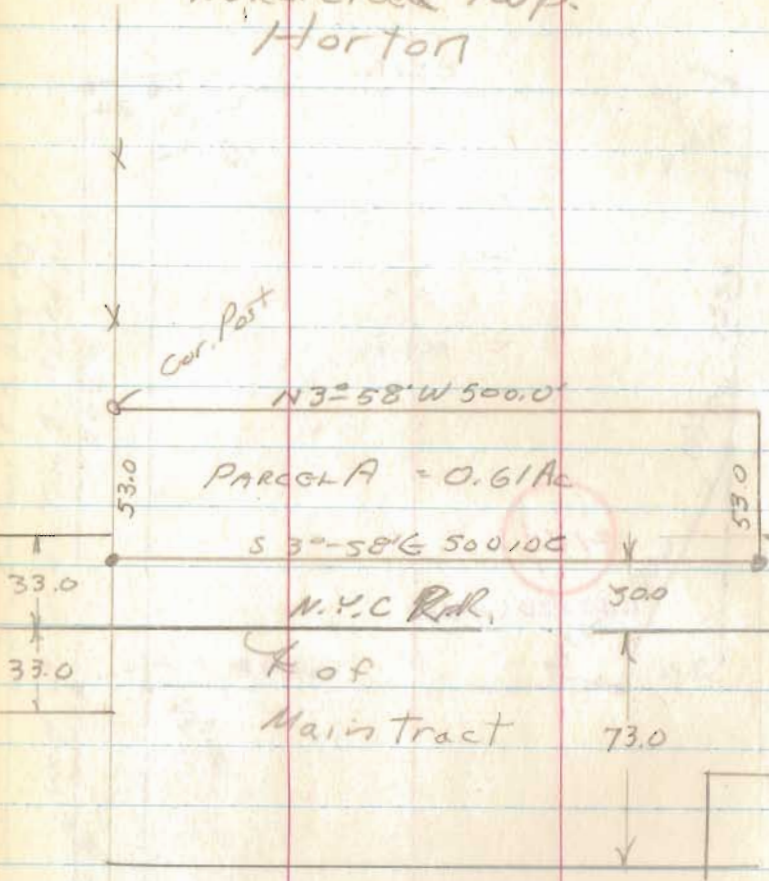 Twp.
Horton
Cor. Post
N 3°-58' W 500.0'
53.0
PARCEL A = 0.61 Ac
53.0
S 3°-58' E 500.00
33.0
N.Y.C R.R.
30.0
33.0
℄ of
Main tract
73.0